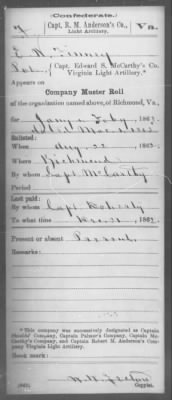 (Confederate.)
Capt. R. M. Anderson's Co.,
Va.
Light Artillery.
E. W.
Capt. Edward S. McCarthy's Co.
Virginia Light Artillery.*
Appears on
Company Muster Roll
of the organization named above, of Richmond, Va.,
for Jany & Feby, 186
dated
Enlisted:
When Aug. 22, 186
Where Richmond
By whom Capt McCarthy
Period
Last paid:
By whom Capt
To what time Dec. 31, 186
Present or absent Present
Remarks:
*This company was successively designated as Captain
Company, Captain Palmer's Company, Captain Mc-
Carthy's Company, and Captain Robert M. Anderson's Com-
pany Virginia Light Artillery.
Book mark:
Copyist.